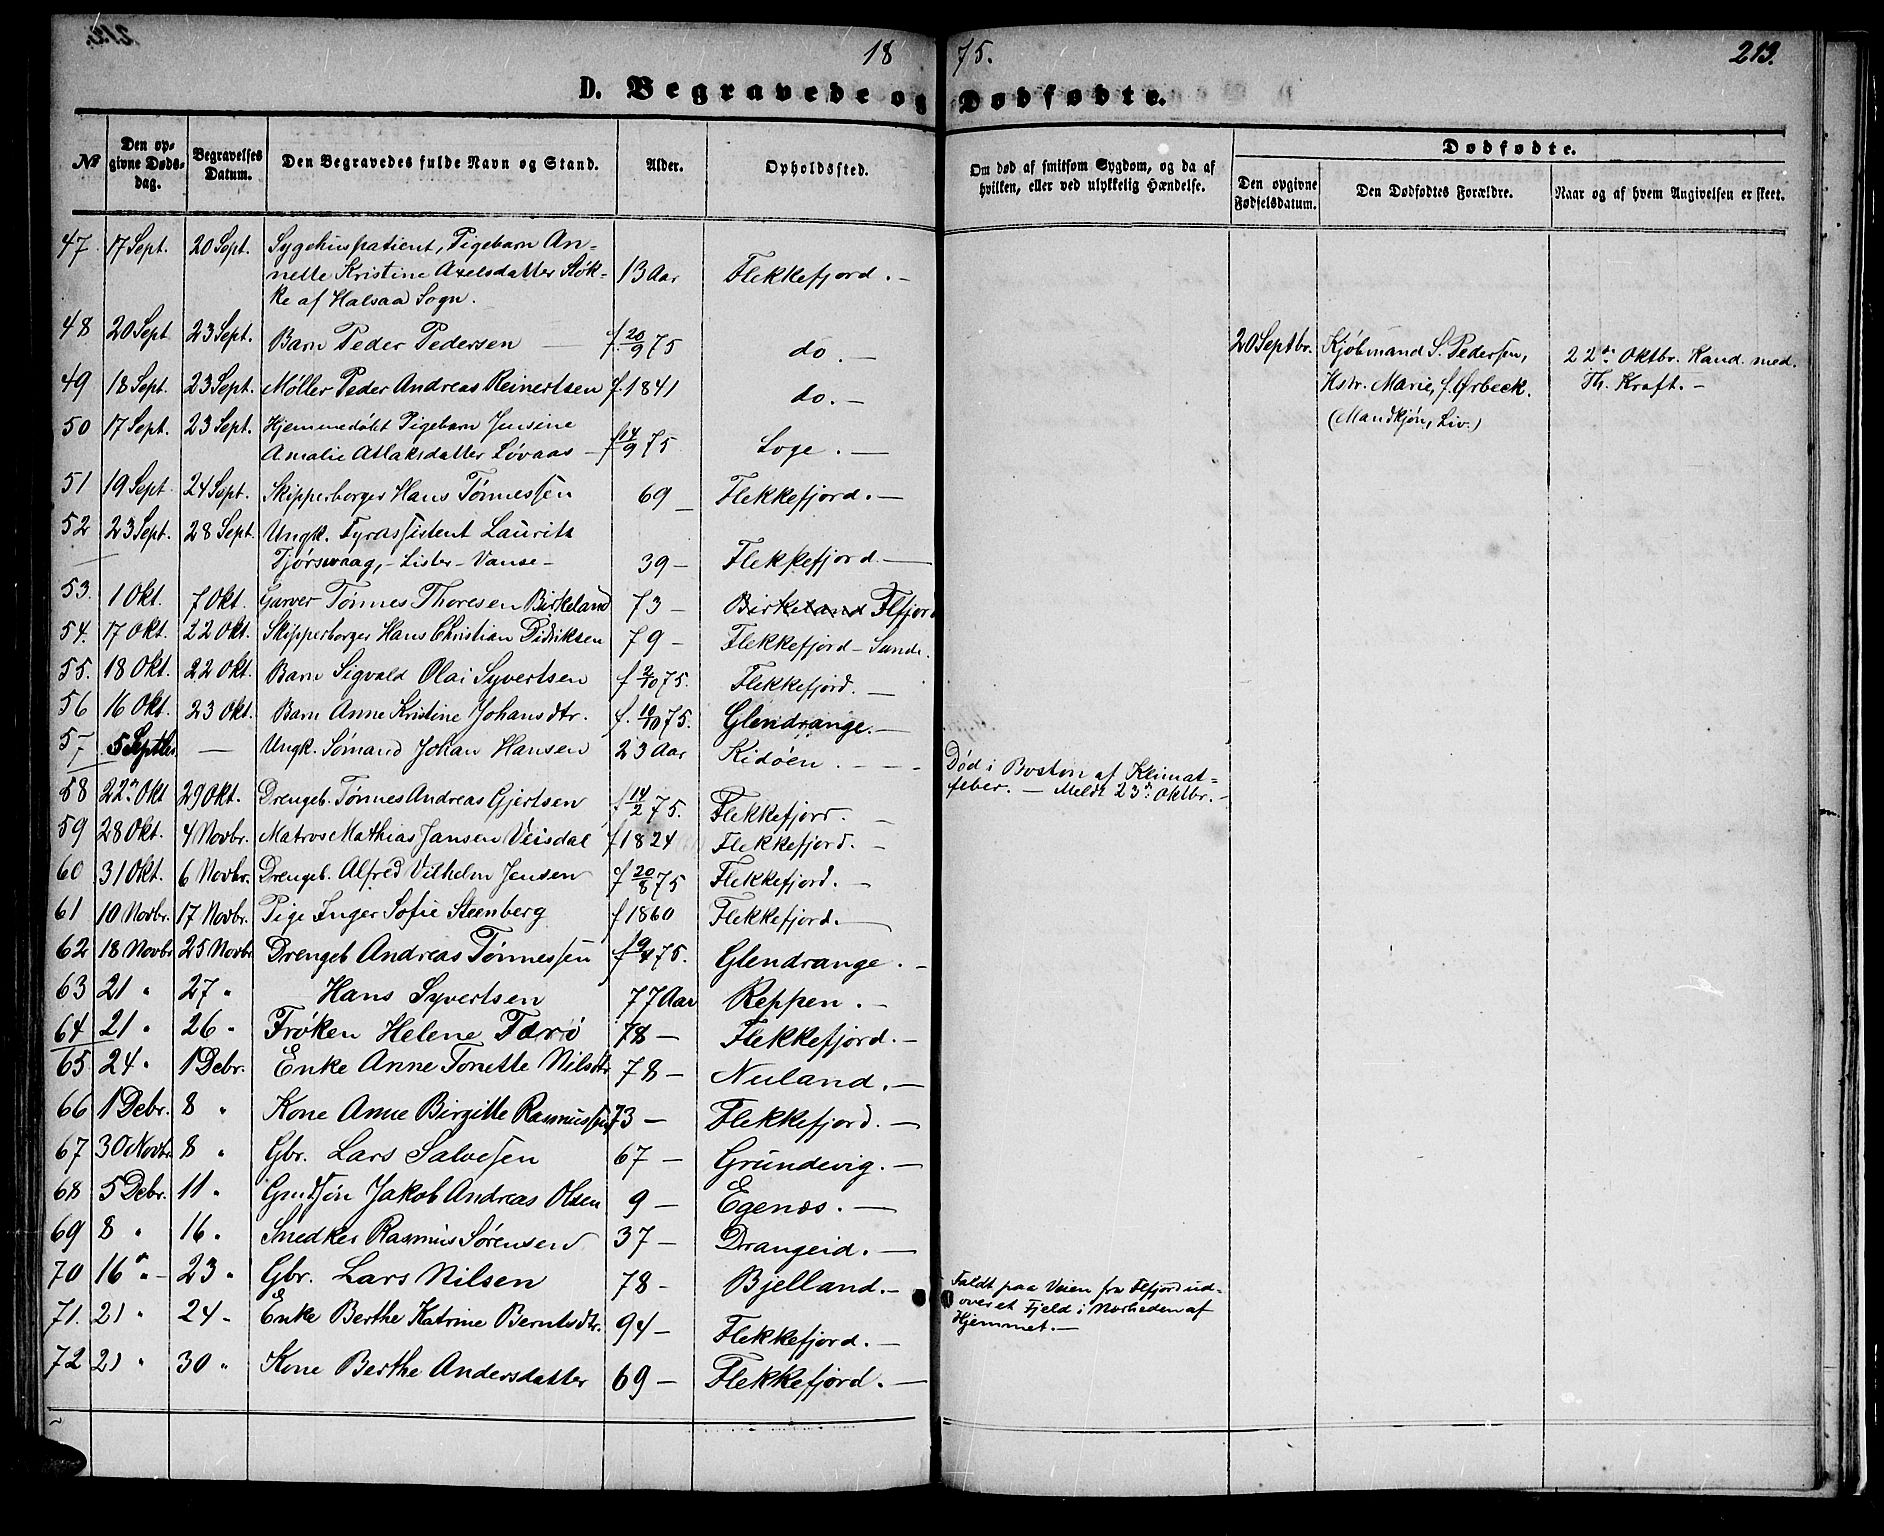 1875.
213.
D. Begravede og Dødfødte.
No
Den opgivne Dødsdag.
Begravelses Datum.
Den Begravedes fulde Navn og Stand.
Alder.
Opholdssted.
Om død af smitsom Sygdom, og da af hvilken, eller ved ulykkelig Hændelse.
Dødfødte.
Den opgivne Fødselsdatum.
Den Dødfødtes Forældre.
Naar og af hvem Angivelsen er skeet.
47 17 Sept. 20 Sept. Sygehuspatient, Pigebarn An-
nette Kristine Axelsdatter Støk- 13 Aar Flekkefjord. —
ke af Halsaa Sogn.
48 20 Sept 23 Sept. Barn Peder Pedersen — f. 20/9 75 do. — 20 Septbr. Kjøbmand S. Pedersen, 22de Oktbr. Kand. med.
Hstr. Marie, f. Ørbeck. Th. Kraft. —
(Mandkjøn, Liv.)
49 18 Sept. 23 Sept. Møller Peder Andreas Reinertsen f. 1841 do. —
50 17 Sept. 23 Sept. Hjemmedøbt Pigebarn Jensine
Amalie Atlaksdatter Løvaas — f 14/9 75 Loge. —
51 19 Sept 24 Sept. Skipperborger Hans Tønnessen 69 — Flekkefjord. —
52 23 Sept. 28 Sept. Ungk. Fyrassistent Laurits
Tjørsvaag, - Lister - Vanse - 39 — Flekkefjord. —
53. 1 Okt. 7 Okt. Garver Tønnes Thoresen Birkeland 73 — Birkeland Flfjord
54. 17 Okt. 22 Okt. Skipperborger Hans Christian Didriksen 79 — Flekkefjord - Sunde.
55. 18 Okt. 22 Okt. Barn Sigvald Olai Syvertsen f 2/10 75. Flekkefjord. —
56 16 Okt. 23 Okt. Barn Anne Kristine Johansdtr. f. 10/10 75. Glendrange. —
57 5 Septbr — Ungk. Sømand Johan Hansen 23 Aar Kidøen. — Død i Boston af Klimat-
feber. — Meldt 23de Oktbr. —
58 22de Okt 29 Okt. Drengeb. Tønnes Andreas Gjertsen f 14/2 75. Flekkefjord. —
59 28 Okt. 4 Novbr. Matros Mathias Jansen Veisdal f 1824 Flekkefjord. —
60 31 Okt. 6 Novbr. Drengeb. Alfred Vilhelm Jensen f 20/8 75 Flekkefjord. —
61 10 Novbr. 17 Novbr. Pige Inger Sofie Steenberg f 1860 Flekkefjord. —
62 18 Novbr 25 Novbr Drengeb Andreas Tønnessen f 9/4 75. Glendrange. —
63 21 " 27 " Hans Syvertsen 77 Aar Reppen. —
64 21 " 26 " Frøken Helene Færø 78 — Flekkefjord. —
65 24 " 1 Debr. Enke Anne Tonette Nilsdtr 78 — Nuland. —
66 1 Debr. 8 " Kone Anne Birgitte Rasmussen 73 — Flekkefjord. —
67 30 Novbr. 8 " Gbr. Lars Salvesen 67 — Grundevig. —
68 5 Debr. 11 " Grdsøn Jakob Andreas Olsen 9 — Egenæs. —
69 8 " 16 " Snedker Rasmus Sørensen 37 — Drangeid. —
70 16 " — 23 " Gbr. Lars Nilsen 78 — Bjelland. — Faldt paa Veien fra Flfjord ud-
over et Fjeld i Nærheden af
Hjemmet. —
71. 21 " 24 " Enke Berthe Katrine Berntsdtr. 94 — Flekkefjord. —
72 21 " 30 " Kone Berthe Andersdatter 69 — Flekkefjord. —